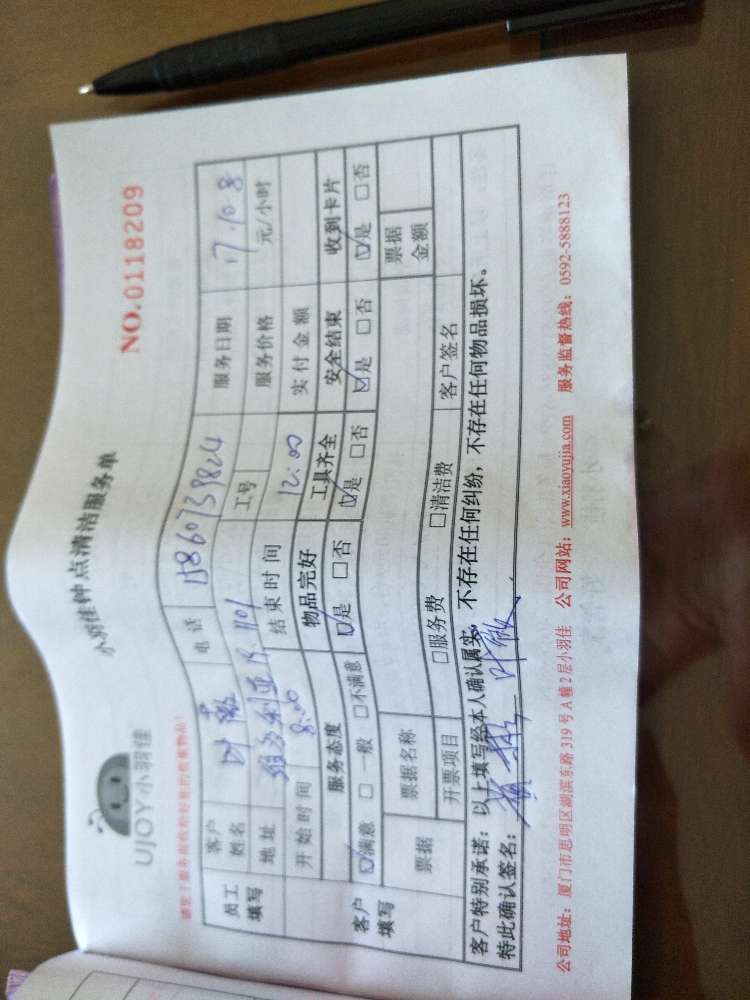 UJOY小羽佳
小羽佳钟点清洁服务单
NO.0118209
客户姓名 叶薇 电话 服务日期 17.10.8
地址 工号 服务价格 元/小时
员工填写 开始时间 8:00 结束时间 12:00 实付金额
服务态度 物品完好 工具齐全 安全结束 收到卡片
客户填写 ☑满意 □一般 □不满意 ☑是 □否 ☑是 □否 ☑是 □否 ☑是 □否
票据 票据名称 票据金额
开票项目 □服务费 □清洁费 客户签名
客户特别承诺：以上填写经本人确认属实，不存在任何纠纷，不存在任何物品损坏。
特此确认签名： 叶薇
公司地址：厦门市思明区湖滨东路319号A幢2层小羽佳 公司网站：www.xiaoyujia.com 服务监督热线：0592-5888123